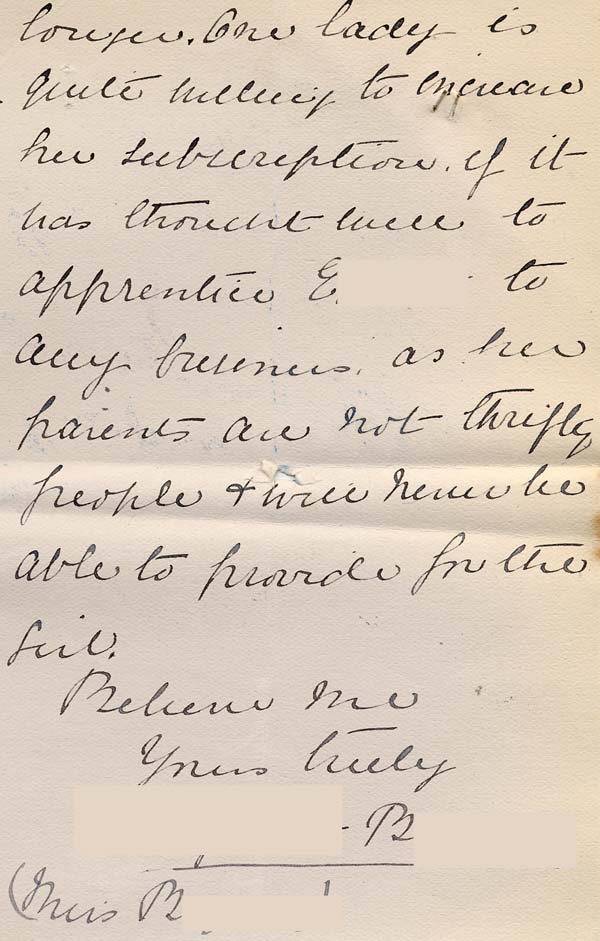 longer. One lady is
quite willing to increase
her subscription. if it
has thought well to
apprentice E. to
any business. as her
parents are not thrifty
people & will never be
able to provide for the
girl.
Believe me
Yours truly
- B
(Miss B